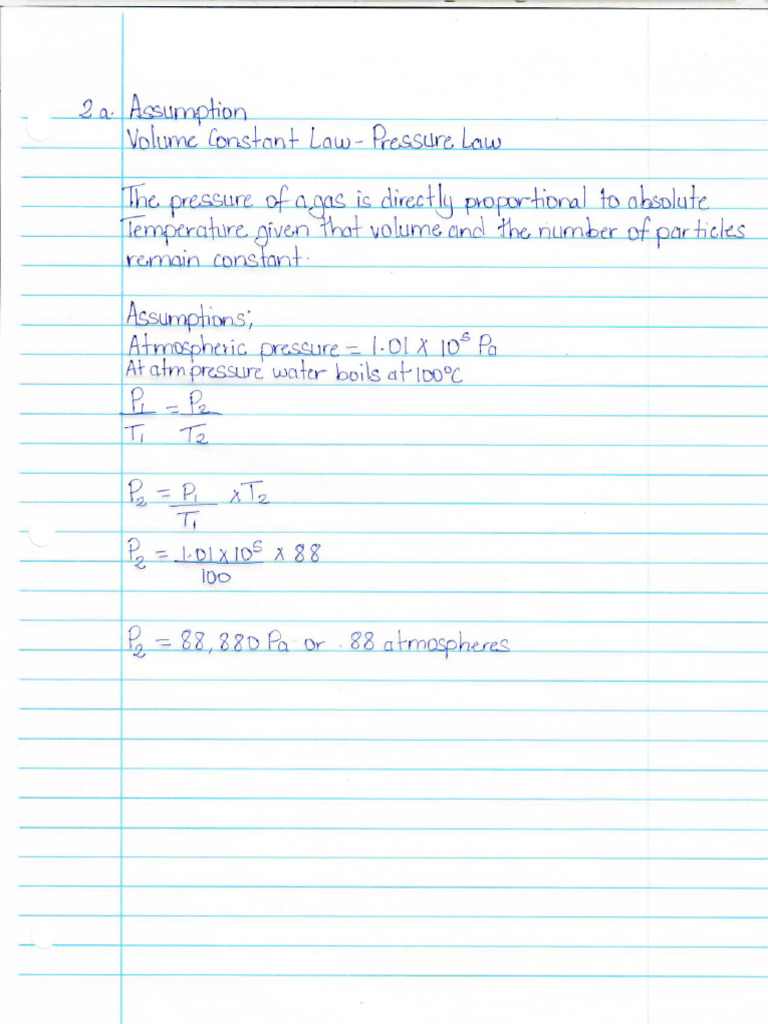 2a. Assumption
Volume Constant Law - Pressure Law
The pressure of a gas is directly proportional to absolute
Temperature given that volume and the number of particles
remain constant.
Assumptions;
Atmospheric pressure = 1.01 X 10⁵ Pa
At atm pressure water boils at 100°C
P₁ = P₂
T₁ T₂
P₂ = P₁ x T₂
T₁
P₂ = 1.01 x 10⁵ x 88
100
P₂ = 88,880 Pa or .88 atmospheres